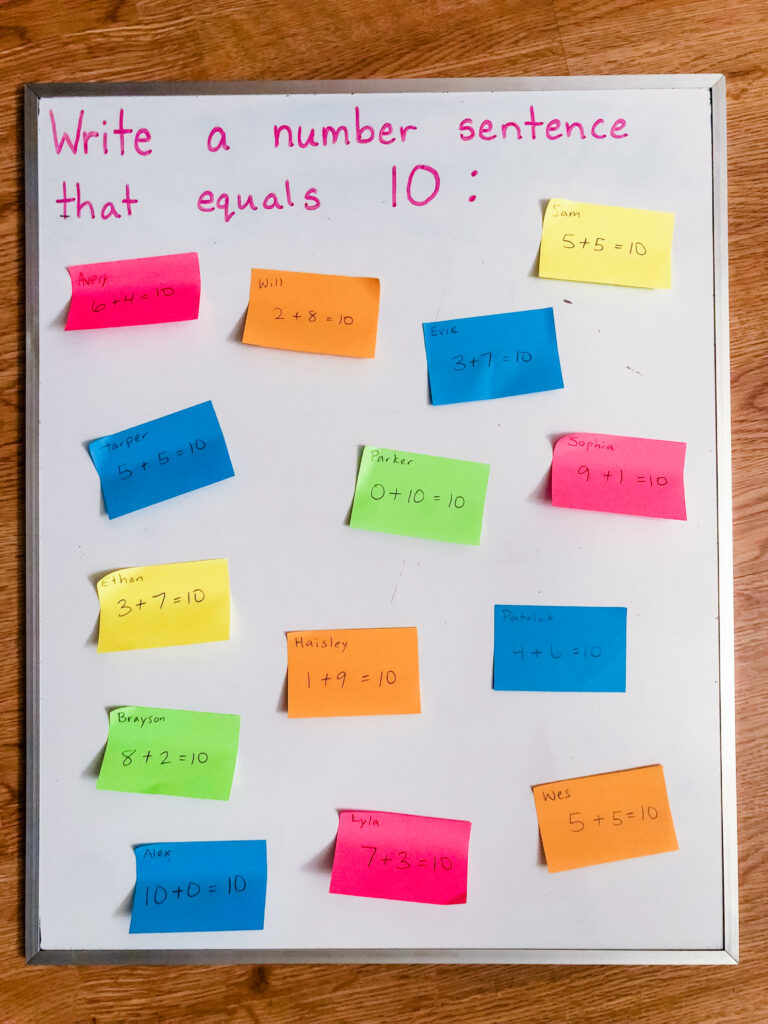 Write a number sentence
that equals 10:
Sam
5+5=10
Avery
6+4=10
Will
2+8=10
Evie
3+7=10
Tarper
5+5=10
Parker
0+10=10
Sophia
9+1=10
Ethan
3+7=10
Haisley
1+9=10
Patrick
4+6=10
Brayson
8+2=10
Wes
5+5=10
Lyla
7+3=10
Alex
10+0=10